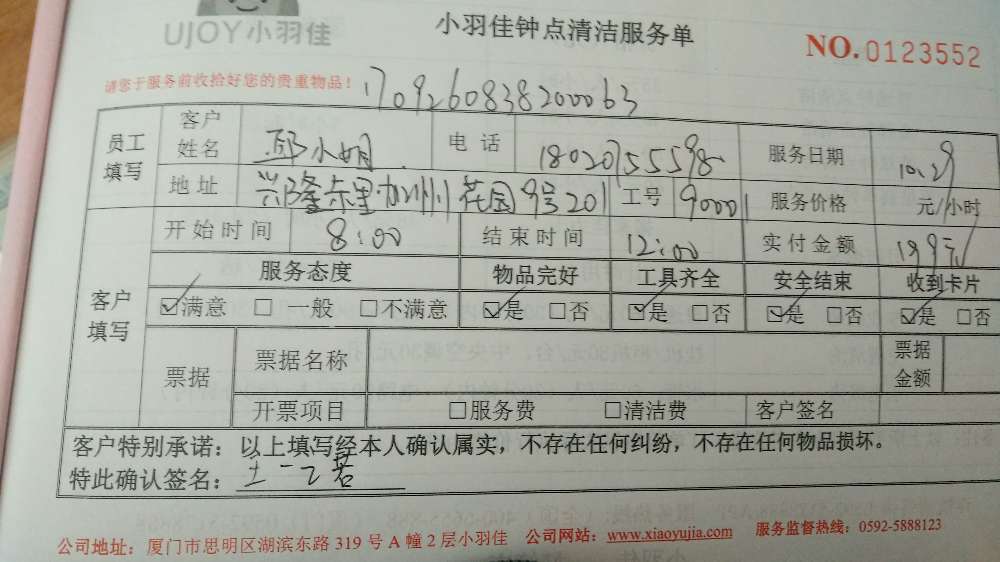 UJOY小羽佳
小羽佳钟点清洁服务单
NO.0123552
请您于服务前收拾好您的贵重物品！
1709260838200063
员工填写 客户姓名 邱小姐 电话 18020755598 服务日期 10.29
地址 兴隆东里加州花园9号201 工号 90001 服务价格 元/小时
客户填写 开始时间 8:00 结束时间 12:00 实付金额 199元
服务态度 物品完好 工具齐全 安全结束 收到卡片
☑满意 □一般 □不满意 ☑是 □否 ☑是 □否 ☑是 □否 ☑是 □否
票据 票据名称 票据金额
开票项目 □服务费 □清洁费 客户签名
客户特别承诺：以上填写经本人确认属实，不存在任何纠纷，不存在任何物品损坏。
特此确认签名：
公司地址：厦门市思明区湖滨东路 319 号 A 幢 2 层小羽佳 公司网站：www.xiaoyujia.com 服务监督热线：0592-5888123